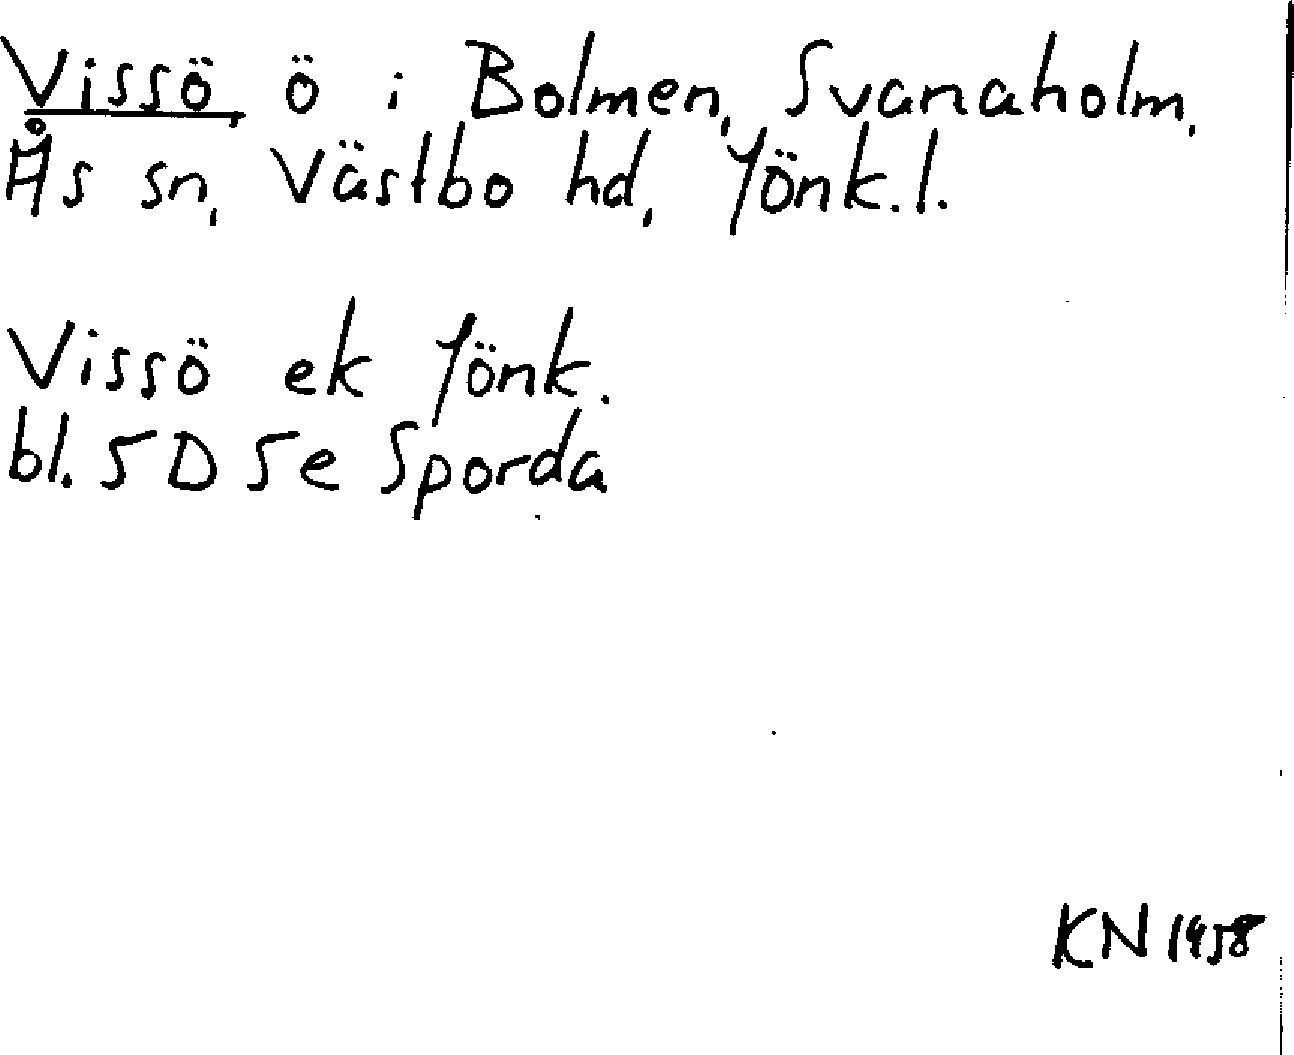 Vissö, ö i Bolmen, Svanaholm,
Ås sn, Västbo hd, Jönk.l.
Vissö ek Jönk.
bl. 5D 5e Sporda
KN 1958